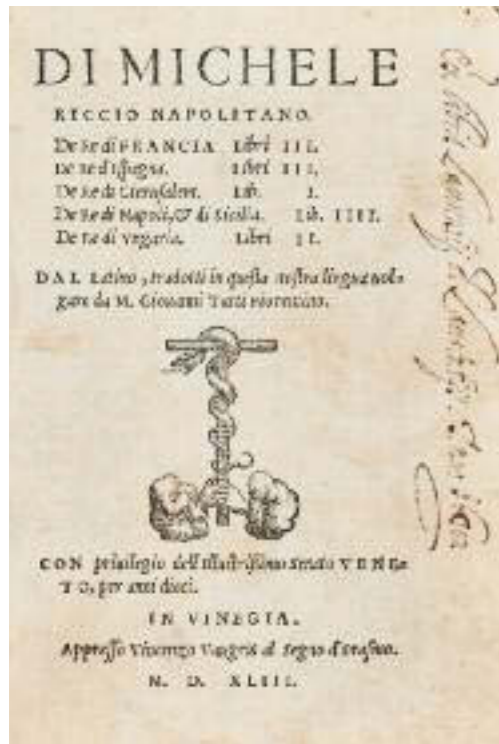 DI MICHELE
RICCIO NAPOLITANO.
De Re di FRANCIA Libri III.
De Re d'Ispagna. Libri III.
De Re di Hierusalem. Lib. I.
De Re di Napoli, & di Sicilia. Lib. IIII.
De Re di Vngaria. Libri II.
DAL Latino, tradotti in questa nostra lingua uol-
gare da M. Giouanni Tatti Fiorentino.
CON priuilegio dell'Illustrissimo Senato VENE-
TO, per anni dieci.
IN VINEGIA.
Appresso Vincenzo Vaugris al Segno d'Erasmo.
M. D. XLIII.